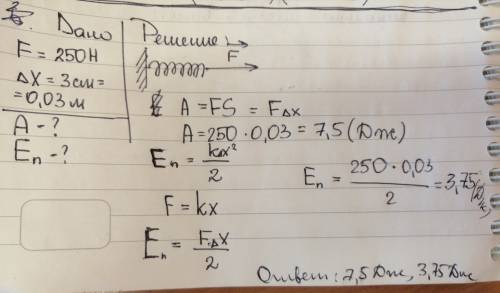 Дано
F = 250H
Δx = 3см =
= 0,03 м
A - ?
Eп - ?
Решение:
F
A = FS = FΔx
A = 250 · 0,03 = 7,5 (Дж)
Eп = kΔx²/2
F = kx
Eп = F·Δx/2
Eп = 250 · 0,03/2 = 3,75 (Дж)
Ответ: 7,5 Дж, 3,75 Дж